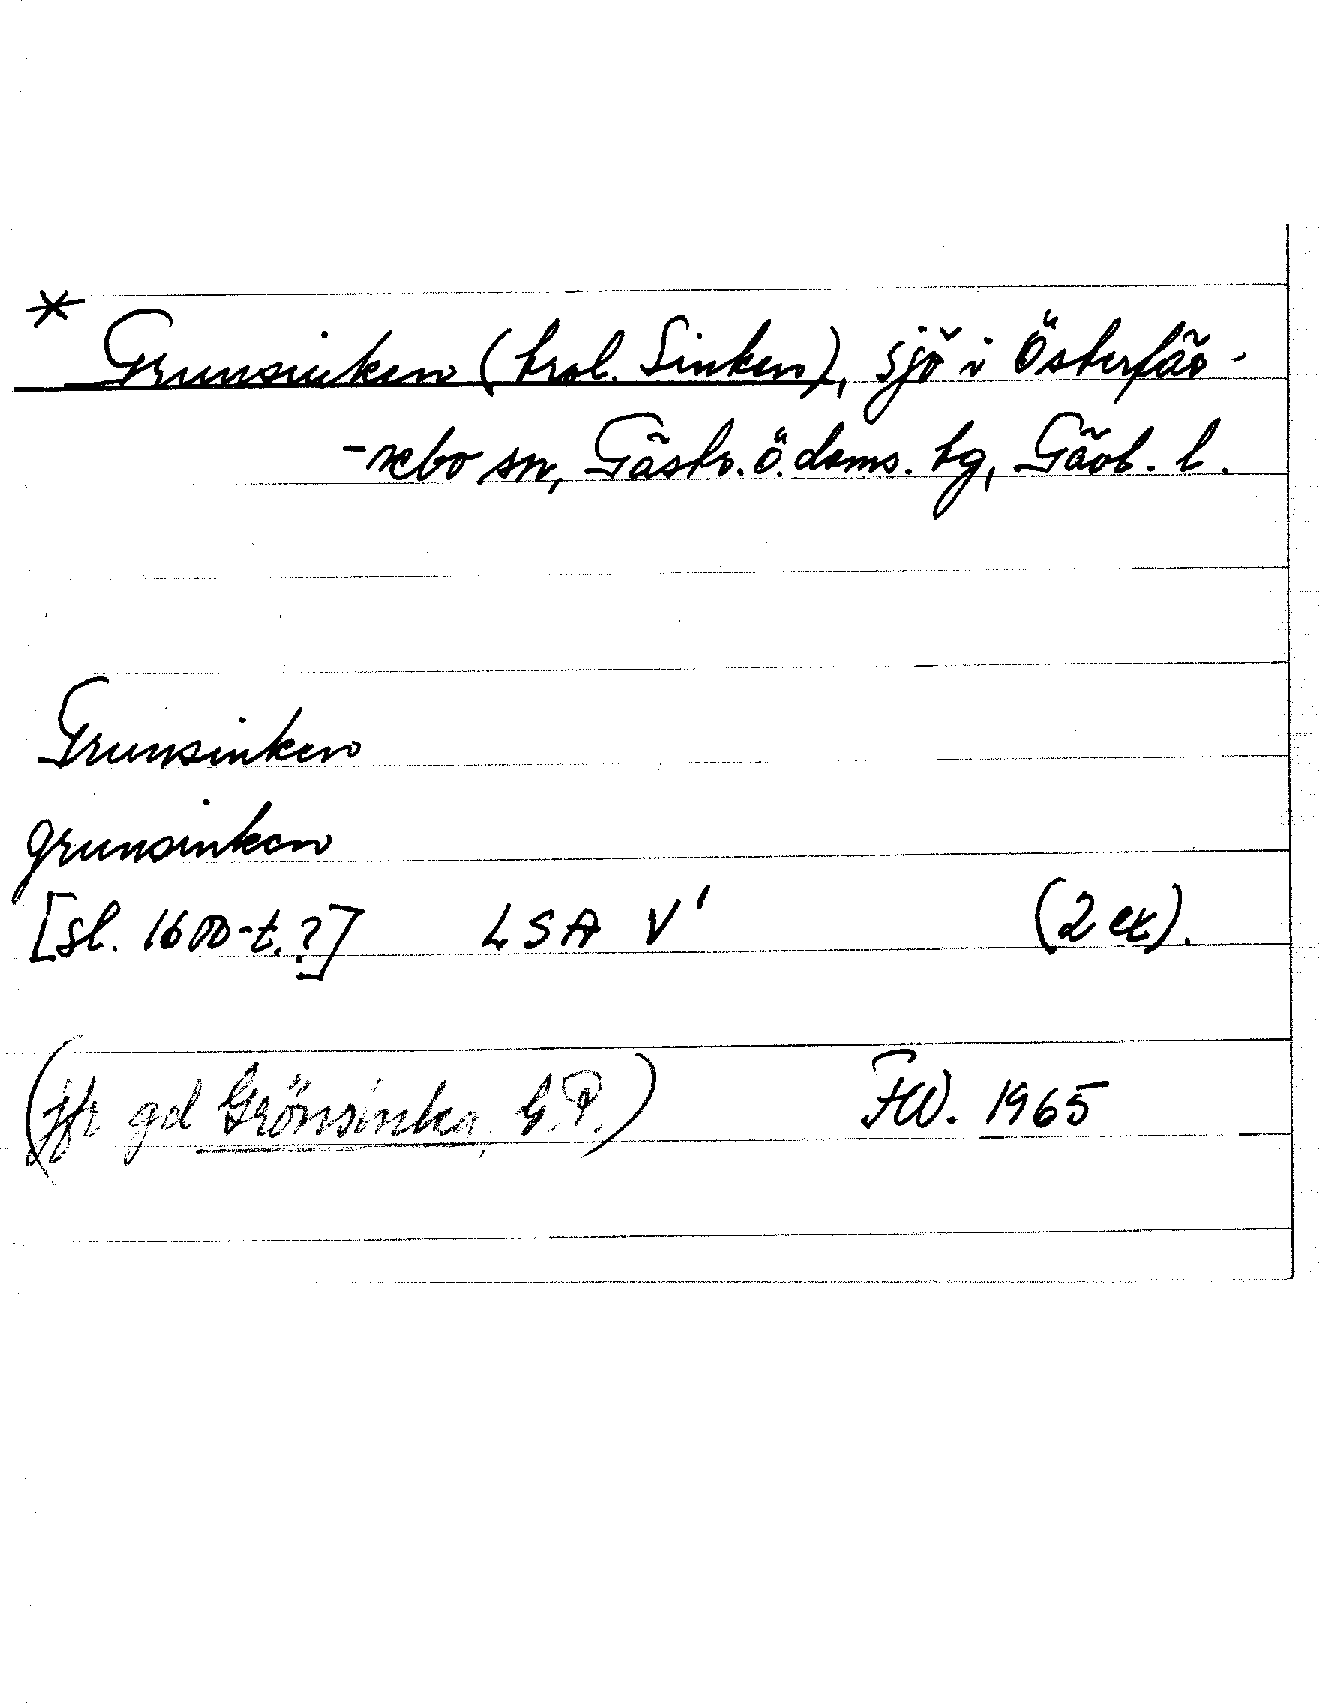 * Grunsinken (trol. Sinken), sjö i Österfär-
-nebo sn, Gästr. ö. doms. tg, Gävl. l.
Grunsinken
grunsinken
[sl. 1600-t.?] LSA V¹ (2 ex).
(jfr gd Grönsinka, G.P.) FW. 1965